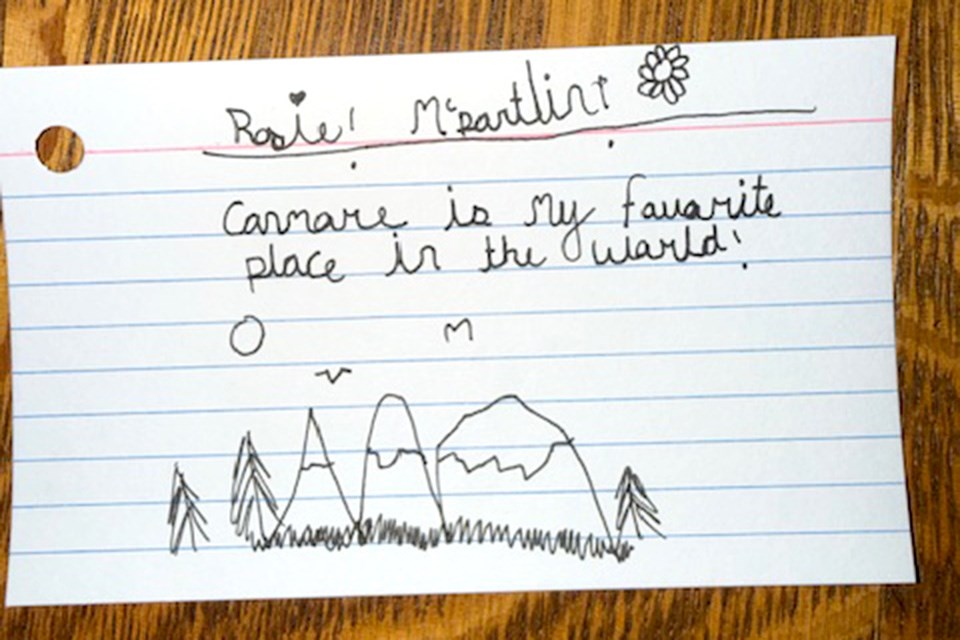 Rosie! McPartlin!
Canmore is my favorite
place in the world!